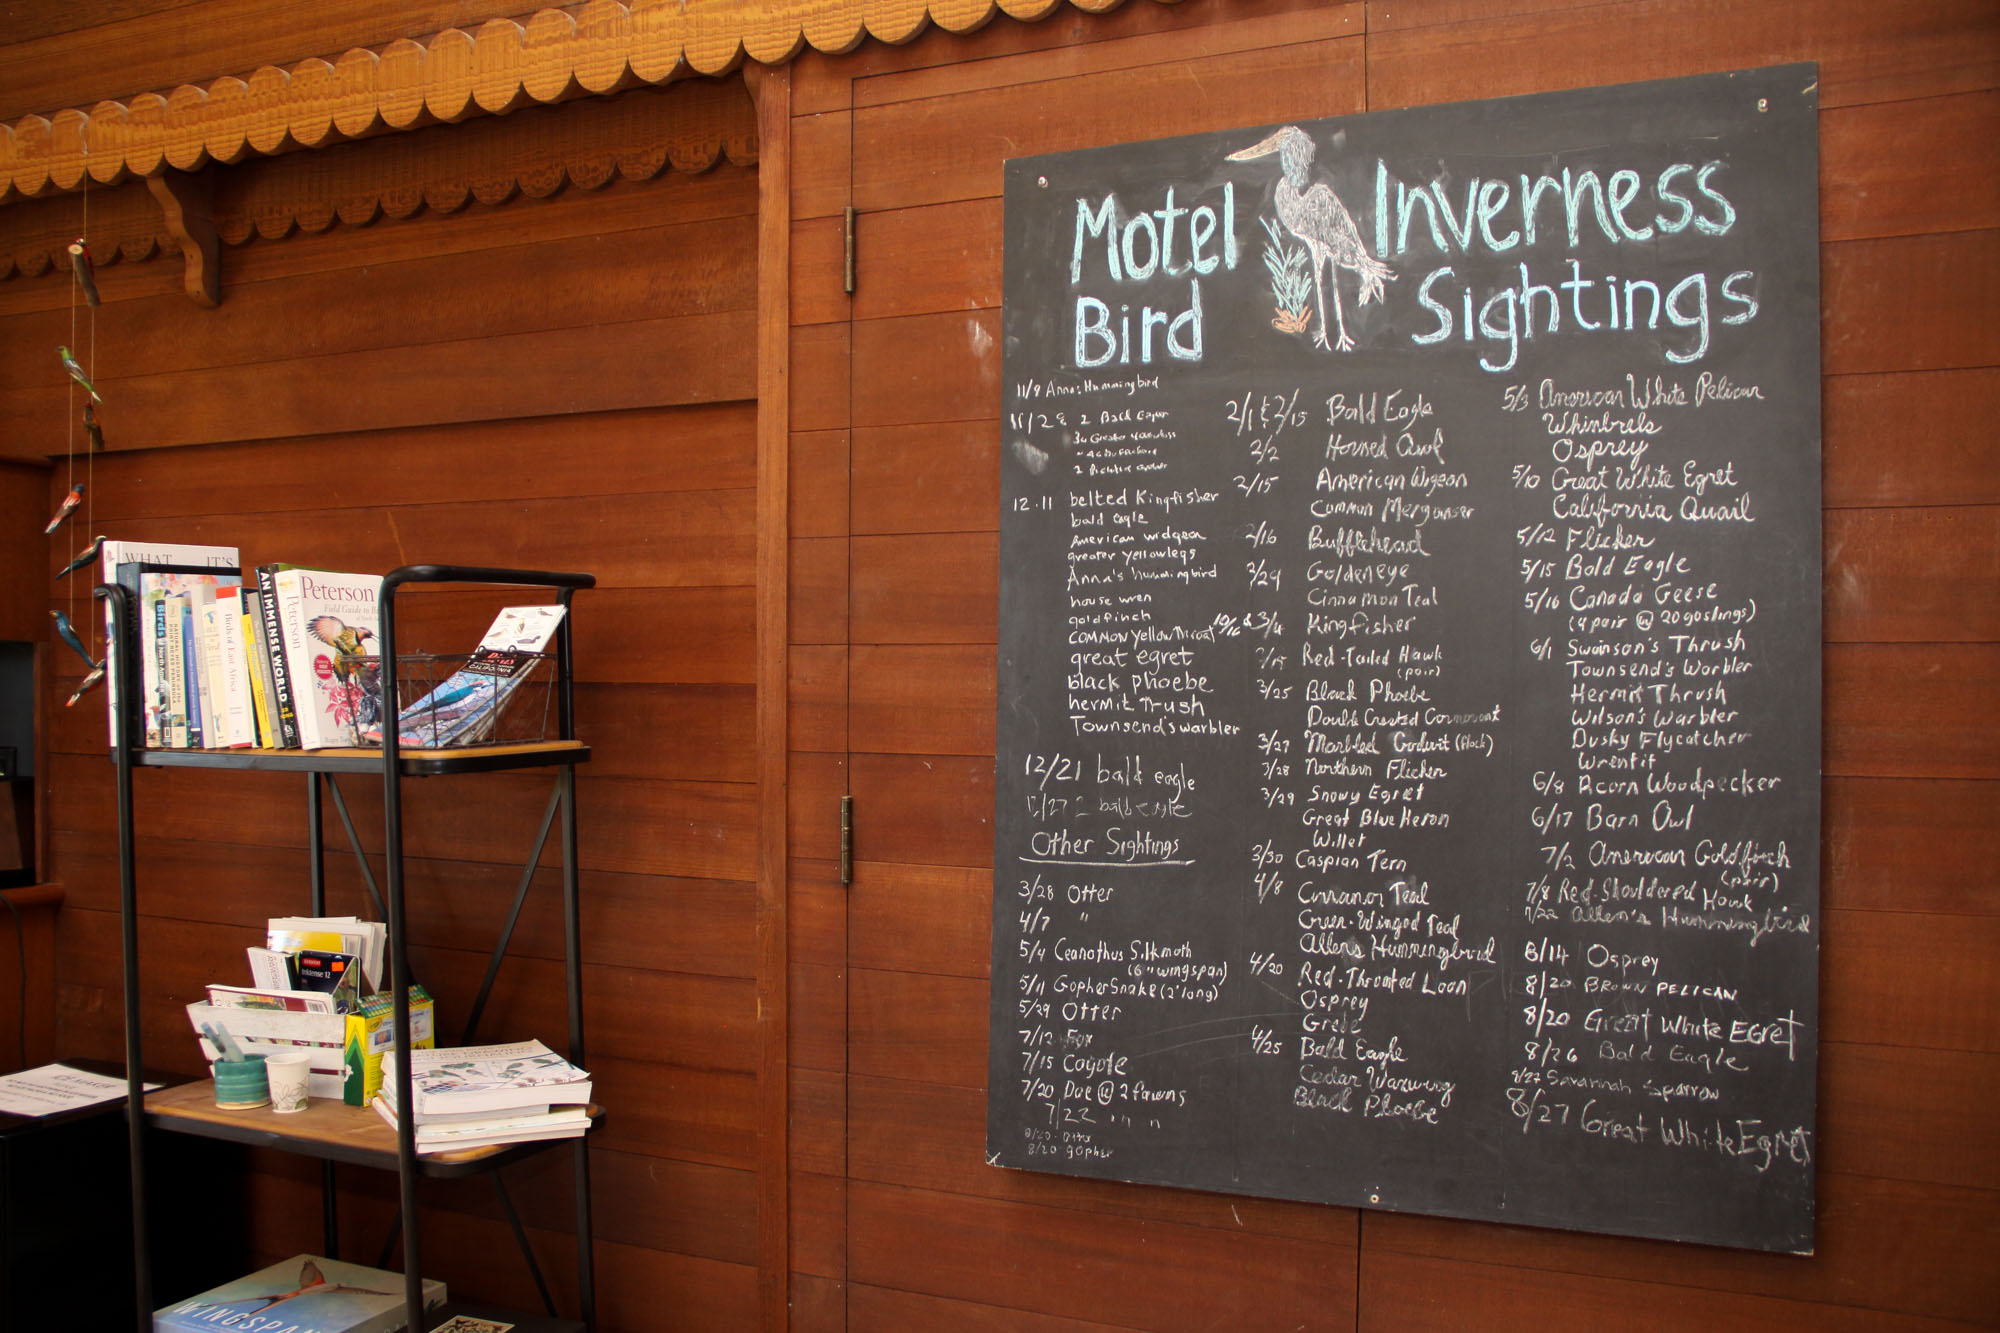 Motel Inverness
Bird Sightings
11/9 Anna's Hummingbird
11/28 2 Bald
30 Greater
2
12.11 belted Kingfisher
bald eagle
American widgeon
greater yellowlegs
Anna's hummingbird
house wren
goldfinch
COMMON Yellow Throat
great egret
black phoebe
hermit Trush
Townsend's warbler
12/21 bald eagle
12/27 2 bald eagle
Other Sightings
3/28 Otter
4/7 "
5/4 Ceanothus Silkmoth
(6" wingspan)
5/11 Gopher Snake (2' long)
5/29 Otter
7/12 Fox
7/15 Coyote
7/20 Doe @ 2 fawns
7/22 " "
8/20 - Otter
8/20 - gopher
2/1 & 2/15 Bald Eagle
2/2 Horned Owl
2/15 American Wigeon
Common Merganser
2/16 Bufflehead
2/29 Goldeneye
Cinnamon Teal
10/16 & 3/4 Kingfisher
3/15 Red-Tailed Hawk
(pair)
3/25 Black Phoebe
Double Crested Cormorant
3/27 Marbled Godwit (flock)
3/28 Northern Flicker
3/29 Snowy Egret
Great Blue Heron
Willet
3/30 Caspian Tern
4/8 Cinnamon Teal
Green-Winged Teal
Allen's Hummingbird
4/20 Red-Throated Loon
Osprey
Grebe
4/25 Bald Eagle
Cedar Waxwing
Black Phoebe
5/3 American White Pelican
Whimbrels
Osprey
5/10 Great White Egret
California Quail
5/12 Flicker
5/15 Bald Eagle
5/16 Canada Geese
(4 pair @ 20 goslings)
6/1 Swainson's Thrush
Townsend's Warbler
Hermit Thrush
Wilson's Warbler
Dusky Flycatcher
Wrentit
6/8 Acorn Woodpecker
6/17 Barn Owl
7/2 American Goldfinch
(pair)
7/8 Red-Shouldered Hawk
7/22 Allen's Hummingbird
8/14 Osprey
8/20 BROWN PELICAN
8/20 Great White Egret
8/26 Bald Eagle
8/27 Savannah Sparrow
8/27 Great White Egret
WHAT IT'S
Birds
NATURAL HISTORY OF THE POINT REYES PENINSULA
Birds of East Africa
AN IMMENSE WORLD
Peterson
Peterson
Field Guide to
CALIFORNIA
Inktense 12
Crayola
WINGSPAN